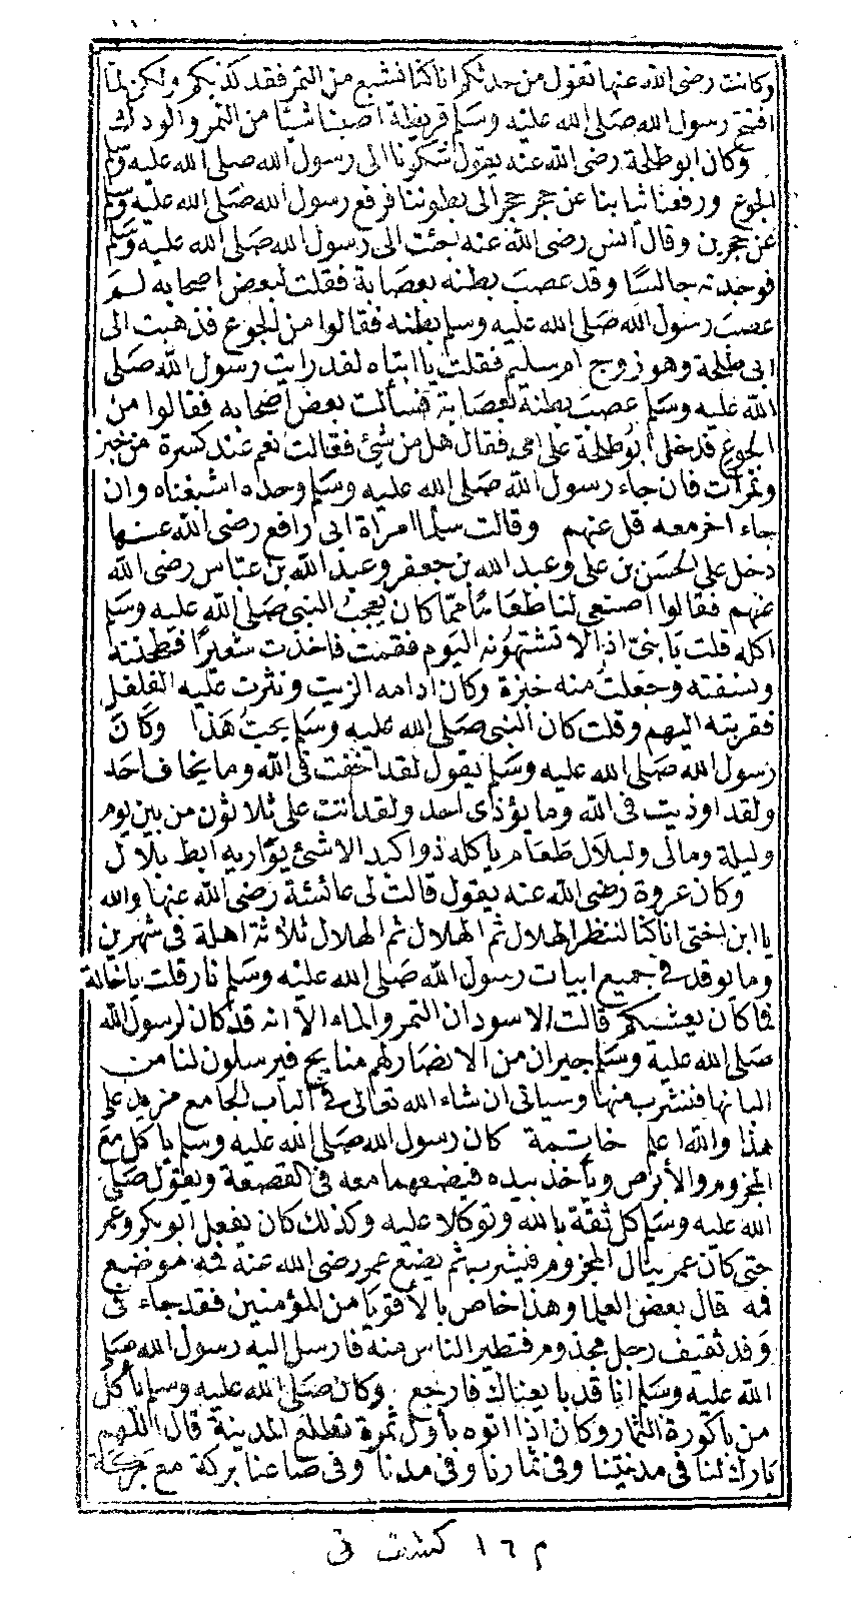 وكانت رضى الله عنها تقول من حدثكم انا كنا نشبع من التمر فقد كذبكم ولكن لما
افتتح رسول الله صلى الله عليه وسلم قريظة اصبنا شيئا من التمر والودك
وكان ابو طلحة رضى الله عنه يقول شكونا الى رسول الله صلى الله عليه وسلم
الجوع ورفعنا ثيابنا عن حجر حجر الى بطوننا فرفع رسول الله صلى الله عليه وسلم
عن حجرين وقال انس رضى الله عنه جئت الى رسول الله صلى الله عليه وسلم
فوجدته جالسا وقد عصب بطنه بعصابة فقلت لبعض اصحابه لم
عصب رسول الله صلى الله عليه وسلم بطنه فقالوا من الجوع فذهبت الى
ابى طلحة وهو زوج ام سليم فقلت يا ابتاه لقد رايت رسول الله صلى
الله عليه وسلم عصب بطنه بعصابة فسألت بعض اصحابه فقالوا من
الجوع فدخل ابو طلحة على امى فقال هل من شئ فقالت نعم عندى كسرة من خبز
وتمرات فان جاء رسول الله صلى الله عليه وسلم وحده اشبعناه وان
جاء اخر معه قل عنهم وقالت سلما امراة ابى رافع رضى الله عنها
دخل على الحسن بن على وعبد الله بن جعفر وعبد الله بن عباس رضى الله
عنهم فقالوا اصنعى لنا طعاما مما كان يعجب النبى صلى الله عليه وسلم
اكله قلت يا بنى اذا لا تشتهونه اليوم فقمت فاخذت شعيرا فطحنته
ونسفته وجعلت منه خبزة وكان ادامه الزيت ونثرت عليه الفلفل
فقربته اليهم وقلت كان النبى صلى الله عليه وسلم يحب هذا وكان
رسول الله صلى الله عليه وسلم يقول لقد اخفت فى الله وما يخاف احد
ولقد اوذيت فى الله وما يؤذى احد ولقد اتت على ثلاثون من بين يوم
وليلة ومالى ولبلال طعام ياكله ذو اكبد الا شئ يواريه ابط بلال
وكان عروة رضى الله عنه يقول قالت لى عائشة رضى الله عنها والله
يا ابن اختى انا كنا لننظر الهلال ثم الهلال ثم الهلال ثلاثة اهلة فى شهرين
وما يوقد فى جميع ابيات رسول الله صلى الله عليه وسلم نار قلت يا خالة
فما كان يعيشكم قالت الاسودان التمر والماء الا انه قد كان لرسول الله
صلى الله عليه وسلم جيران من الانصار لهم منايح فيرسلون لنا من
البانها فنشرب منها وسياتى ان شاء الله تعالى فى الباب الجامع مزيد على
هذا والله اعلم خاتمة كان رسول الله صلى الله عليه وسلم ياكل مع
المجزوم والأبرص ويأخذ بيده فيضعهما معه فى القصعة ويقول صلى
الله عليه وسلم كل ثقة بالله وتوكلا عليه وكذلك كان يفعل ابو بكر وعمر
حتى كان عمر ينال المجزوم فيشرب ثم يضع عمر رضى الله عنه فمه موضع
فمه قال بعض العلما وهذا خاص بالأقويا من المؤمنين فقد جاء فى
وفد ثقيف رجل مجذوم فتطير الناس منه فارسل اليه رسول الله صلى
الله عليه وسلم انا قد بايعناك فارجع وكان صلى الله عليه وسلم يأكل
من باكورة الثمار وكان اذا اتوه بأول ثمرة تطلع المدينة قال اللهم
بارك لنا فى مدينتنا وفى ثمارنا وفى مدنا وفى صاعنا بركة مع بركة
م ١٦ كشف نى